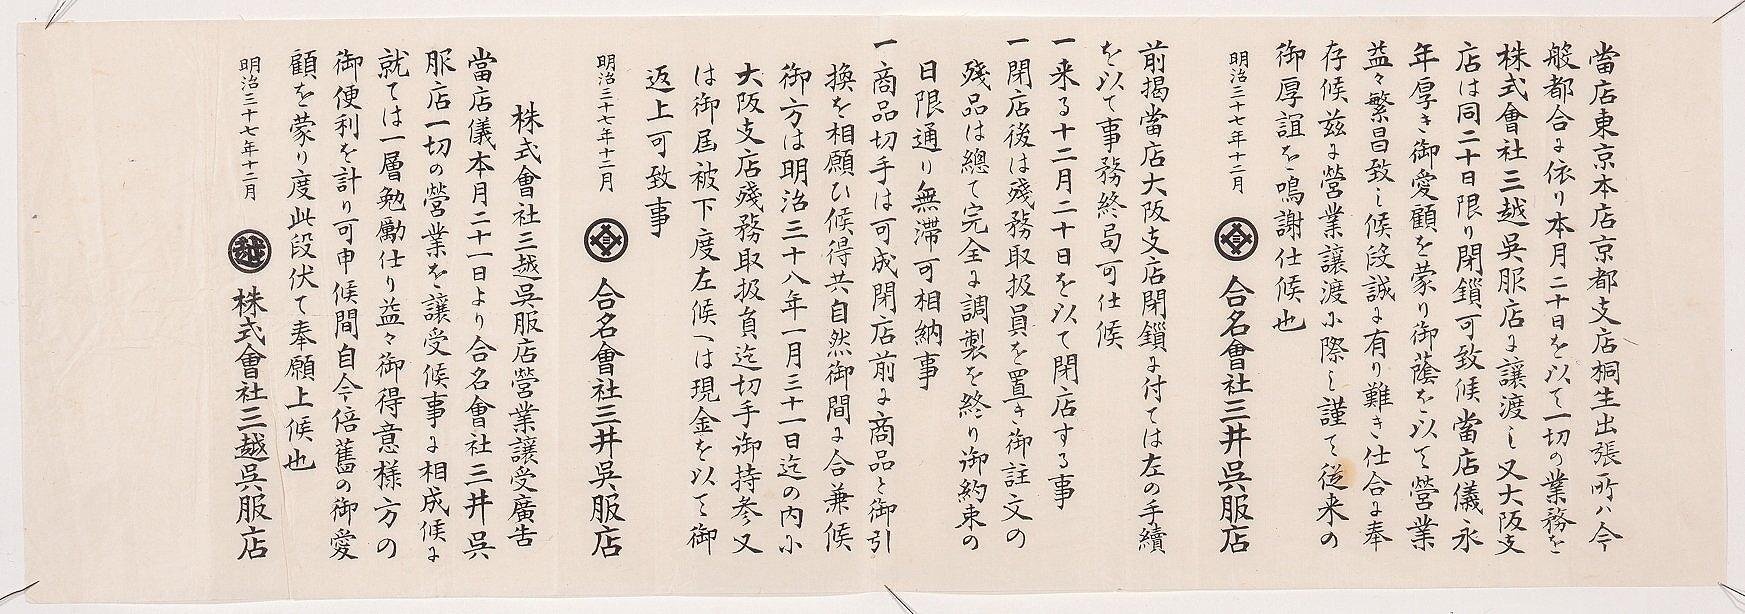 當店東京本店京都支店桐生出張所ハ今
般都合に依り本月二十日を以て一切の業務を
株式會社三越呉服店に讓渡し又大阪支
店は同二十日限り閉鎖可致候當店儀永
年厚き御愛顧を蒙り御蔭を以て營業
益々繁昌致し候段誠に有り難き仕合に奉
存候茲に營業讓渡に際し謹て從来の
御厚誼を鳴謝仕候也
明治三十七年十二月 合名會社三井呉服店
前掲當店大阪支店閉鎖に付ては左の手續
を以て事務終局可仕候
一来る十二月二十日を以て閉店する事
一閉店後は殘務取扱員を置き御註文の
殘品は總て完全に調製を終り御約束の
日限通り無滯可相納事
一商品切手は可成閉店前に商品と御引
換を相願ひ候得共自然御間に合兼候
御方は明治三十八年一月三十一日迄の内に
大阪支店殘務取扱員迄切手御持参又
は御屆被下度左候へは現金を以て御
返上可致事
明治三十七年十二月 合名會社三井呉服店
株式會社三越呉服店營業讓受廣告
當店儀本月二十一日より合名會社三井呉
服店一切の營業を讓受候事に相成候に
就ては一層勉勵仕り益々御得意様方の
御便利を計り可申候間自今倍舊の御愛
顧を蒙り度此段伏て奉願上候也
明治三十七年十二月 越 株式會社三越呉服店